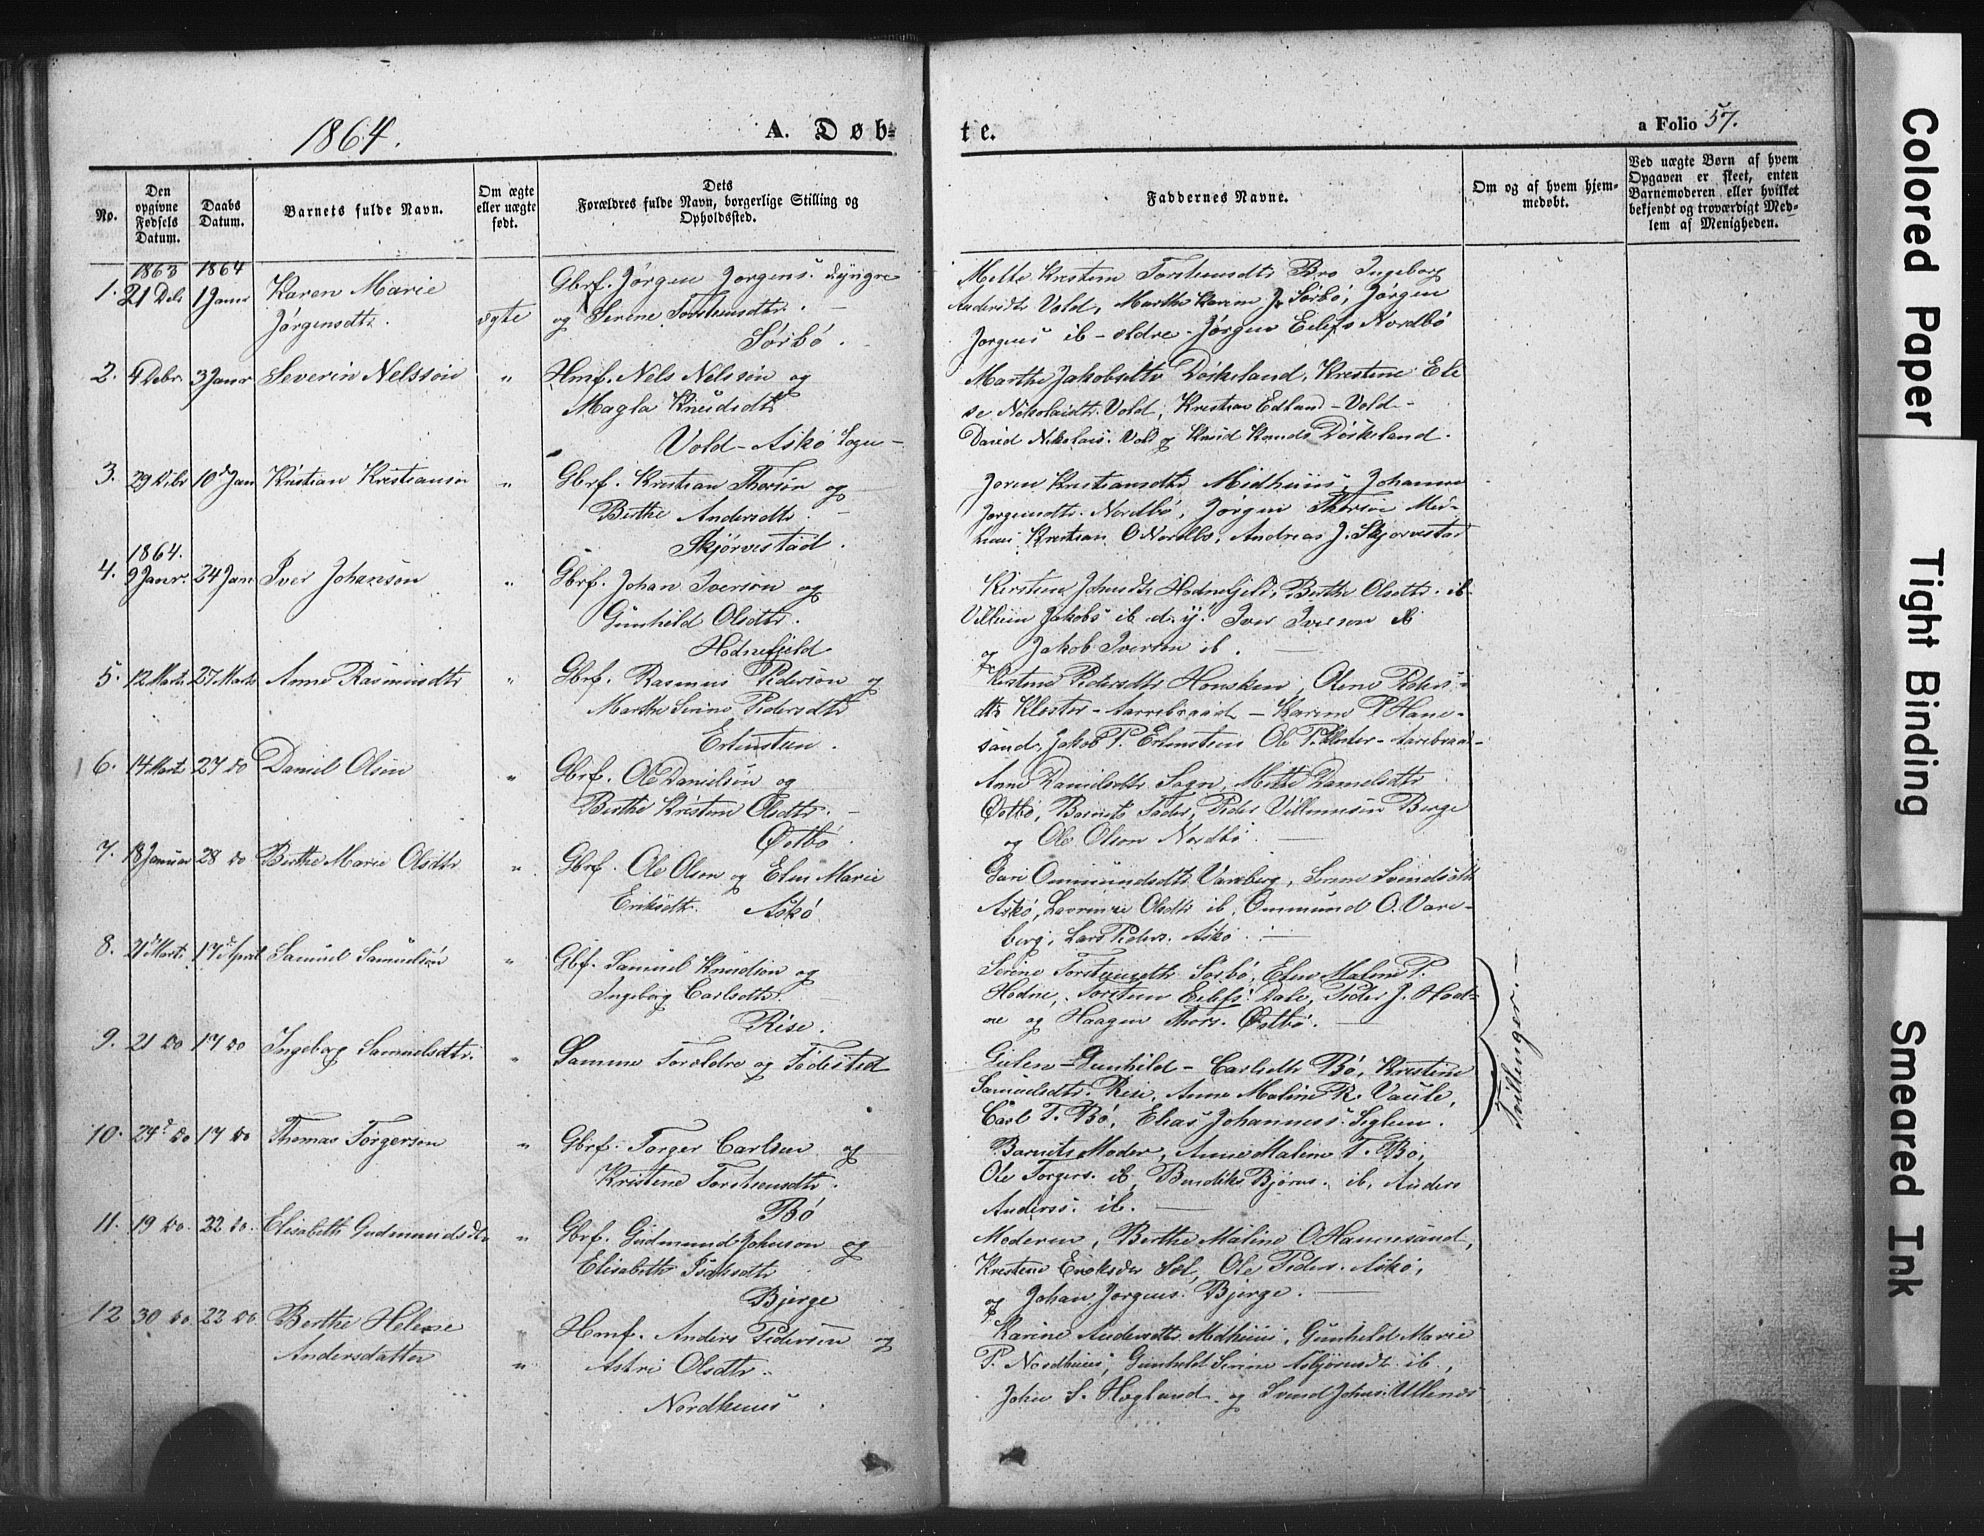 1864.
A. Døb-
te.
a Folio 57.
No.
Den
opgivne
Fødsels
Datum.
Daabs
Datum.
Barnets fulde Navn.
Om ægte
eller uægte
født.
Dets
Forældres fulde Navn, borgerlige Stilling og
Opholdssted.
Faddernes Navne.
Om og af hvem hjem-
medøbt.
Ved uægte Børn af hvem
Opgaven er skeet, enten
Barnemoderen eller hvilket
bekjendt og troværdigt Med-
lem af Menigheden.
1863 1864
1. 21 Debr 1 Janr Karen Marie
Jørgensdtr.
ægte
Gbrf. Jørgen Jørgens. dyngre
og Serene Torstensdtr.
Sørbø.
Mette Krestene Torstensdtr Bro Ingeborg
Andersdtr Vold, Marthe Karine J. Sørbø, Jørgen
Jørgens ib - ældre - Jørgen Eilefs Nordbø
2. 4 Debr. 3 Janr Severin Nelsson "
Hmf. Nels Nelsson og
Magla Knudsdtr
Vold - Askø Sogn -
Marthe Jakobsdtr Døskeland, Krestene Eli
se Nikolaidtr. Vold, Krestian Edland - Vold -
David Nikolais. Vold og Knud Knuds Døskeland.
3. 29 Debr 10d Jan Kristian Kristiansen "
Gbrf. Kristian Thorson og
Berthe Andersdtr.
Skjørvestad.
Joren Kristiansdtr Midhuus, Johanne
Jørgensdtr. Nordbø, Jørgen Thorson Mid-
huus, Krestian O Nordbø, Andreas J. Skjørvestad
1864.
4. 9 Janr. 24 Jan Iver Johanson "
Gbrf. Johan Iverson og
Gunhild Olsdtr.
Hodnefjeld
Hodnefjeld, Berthe Olsdtr. ib
Villum Jakobs ib d. y. Iver Iverson ib
og Jakob Iverson ib.
5. 12 Marts 27 Marts Anne Rasmusdtr "
Gbrf. Rasmus Pederson og
Marthe Serine Pedersdtr
Erlensteen.
Kirstene Pedersdtr Hausken, Olene Peders-
dtr Kloster - Aarrebraad - Karine P Hane-
sand, Jakob P. Erlensteen Ole P. Kloster - Aarebraa-
6. 14 Mart 27 do Daniel Olson "
Gbrf. Ole Danielson og
Berthe Kristene Olsdtr.
Østbø.
Anne Danielsdtr Sogn, Mette Danielsdtr
Østbø, Barnets Fader, Peder Villumsen Berge
og Ole Olson Nordbø.
7. 18 Januar 28 do Berthe Marie Olsdtr "
Gbrf. Ole Olson og Elen Marie
Eriksdtr. Askø.
Guri Ommundsdtr. Vareberg, Serene Svendsdtr
Askø, Lovrense Olsdtr ib, Ommund O. Vare-
berg, Lars Peders. Askø.
8. 21d Marts 17d April Samuel Samuelson "
Gbf. Samuel Knudson og
Ingeborg Carlsdtr.
Rise.
Serine Torstensdtr Sørbø, Elen Malene P.
Hodne, Torsten Eilefs. Dale, Peder J. Hod-
ne og Haagen Thors. Østbø.
Tvillinger.
9. 21 do 17 do Ingeborg Samuelsdtr. "
Samme Forældre og Fødested
Gunhild - Carlsdtr Bø, Kristine
Samuelsdtr. Rise, Anne Malene R. Vaule,
Carl T. Bø, Elias Johannes. Seglem.
10. 24d do 17 do Thomas Torgerson "
Gbrf. Torger Carlsen og
Kristene Torstensdtr.
Bø
Barnets Moder, Anne Malene T. Bø,
Ole Torgers. ib, Bendiks Bjørns. ib, Anders
Anderss. ib.
11. 19 do. 22 do. Elisabeth Gudmundsdtr "
Gbrf. Gudmund Johnson og
Elisabeth Isaksdtr
Bjerge
Moderen, Berthe Malene O. Hanesand,
Krestene Eriksdtr Sel, Ole Peders. Askø,
og Johan Jørgens. Bjerge.
12 30 do. 22 do. Berthe Helene
Andersdatter "
Hmf. Anders Pederson og
Astri Olsdtr.
Nordhuus.
Karine Andersdtr Midhuus, Gunhild Marie
P. Nordhuus, Gunhild Serine Asbjørnsdt. ib,
John S. Hegland og Svend Johns. Ullenes
Colored Paper
Tight Binding
Smeared Ink